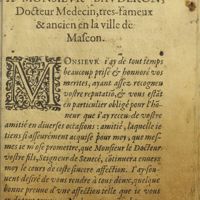 A MONSIEVR BANDERON,
Docteur Medecin, tres-fameux
& ancien en la ville de
Mascon.
MONSIEVR i'ay de tout temps
beaucoup prisé & honnoré vos
merites, ayant assez recogneu
vostre reputatiõ, & vous estât
en particulier obligé pour l'hõ-
neur que i'ay receu de vostre
amitié en diuerses occasions: amitié, laquelle ie
tiens si asseurement acquise pour moy, que mes-
mes ie m'ose promettre, que Monsieur le Docteur
vostre fils, Seigneur de Senecé, cõtinuera enuers
moy le cours de ceste sincere affection. I'ay sou-
uent desiré de vous rendre à tous deux, quelque
bonne preuue d'vne affection telle que ie vous